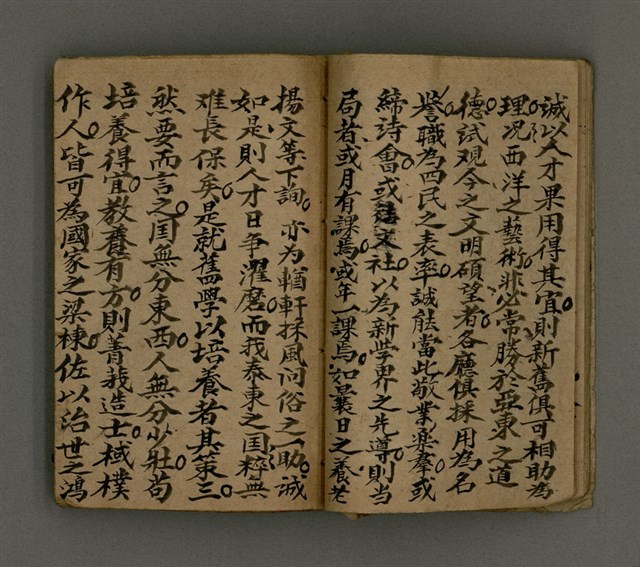 誠以人才果用得其宜。則新舊俱可相助為
理。况西洋之藝術。非必常勝於亞東之道
德。試觀今之文明碩望者。各廳俱採用為名
譽職。為四民之表率。誠能當此敬業樂羣。或
締詩會。或建文社。以為新學界之先導。則当
局者或月有課焉。或年一課焉。如曩日之養老
揚文等下詢。亦为輶軒採風问俗之一助。誠
如是。則人才日爭濯磨。而我泰東之国粹。無
难長保矣。是就舊學以培養者其策三。
然要而言之。国無分東西。人無分少壯。苟
培養得宜。教養有方。則菁莪造士。棫樸
作人。皆可為國家之梁棟。佐以治世之鴻